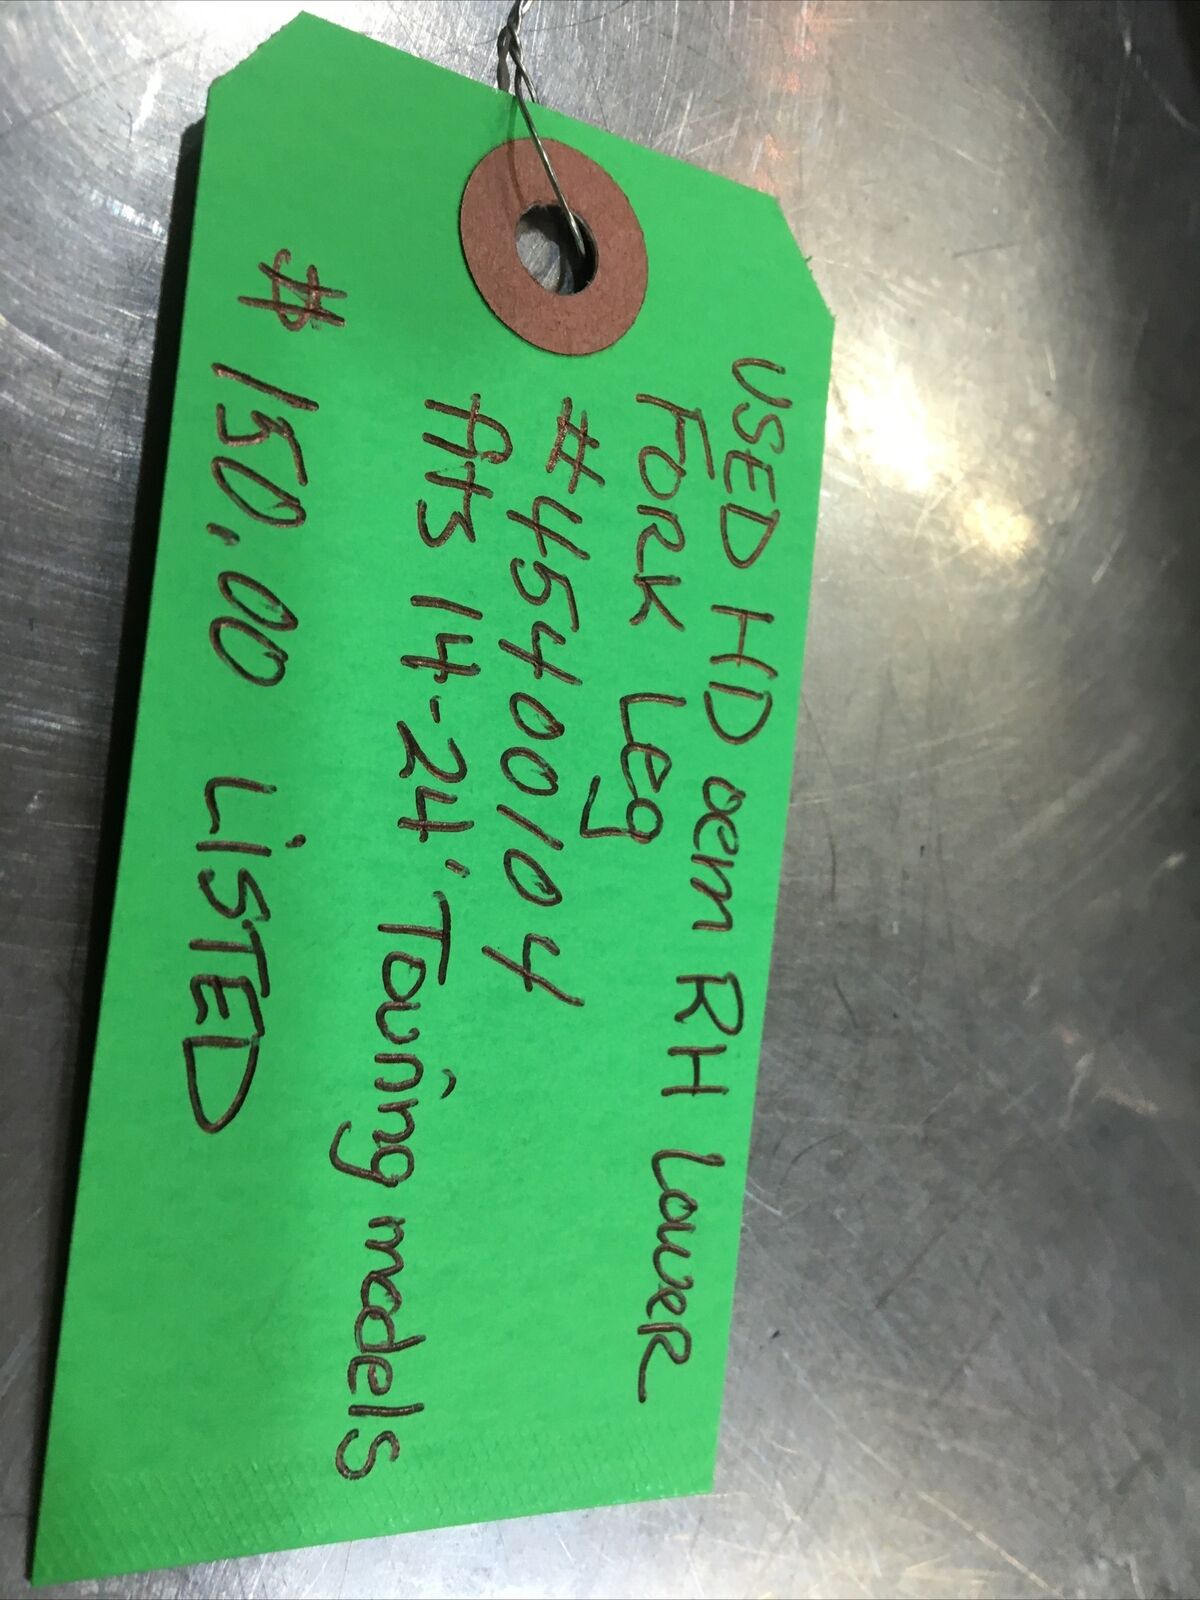 USED HD oem RH LOWER
FORK Leg
#45400104
fits 14-24' Touring models
# 150.00 LiSTED